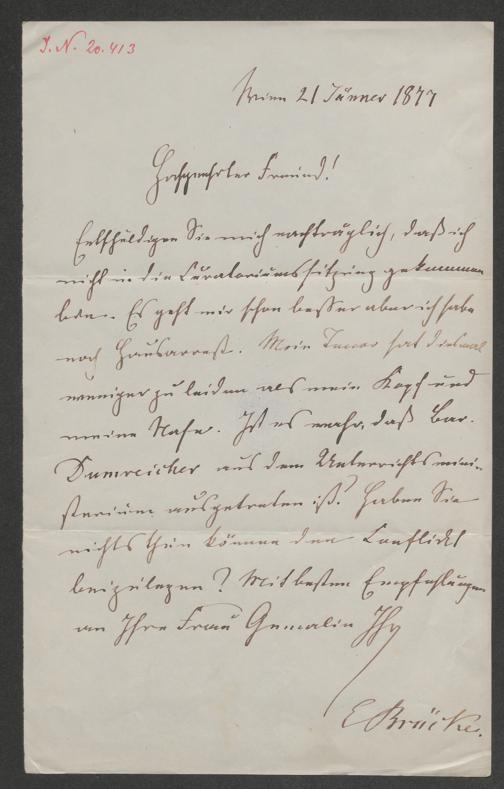 J. N. 20.413
Wien 21 Jänner 1877
Hochgeehrter Freund!
Entschuldigen Sie mich nachträglich, daß ich
nicht in die Curatoriumssitzung gekommen
bin. Es geht mir schon besser aber ich habe
noch Hausarrest. Mein hat diesmal
weniger zu leiden als mein Kopf und
meine Nase. Ist es wahr, daß Bar.
Dumreicher aus dem Unterrichtsmini-
sterium ausgetreten ist? Haben Sie
nichts thun können den Conflict
beizulegen? Mit besten Empfehlungen
an Ihre Frau Gemalin Ihr
E Brücke.